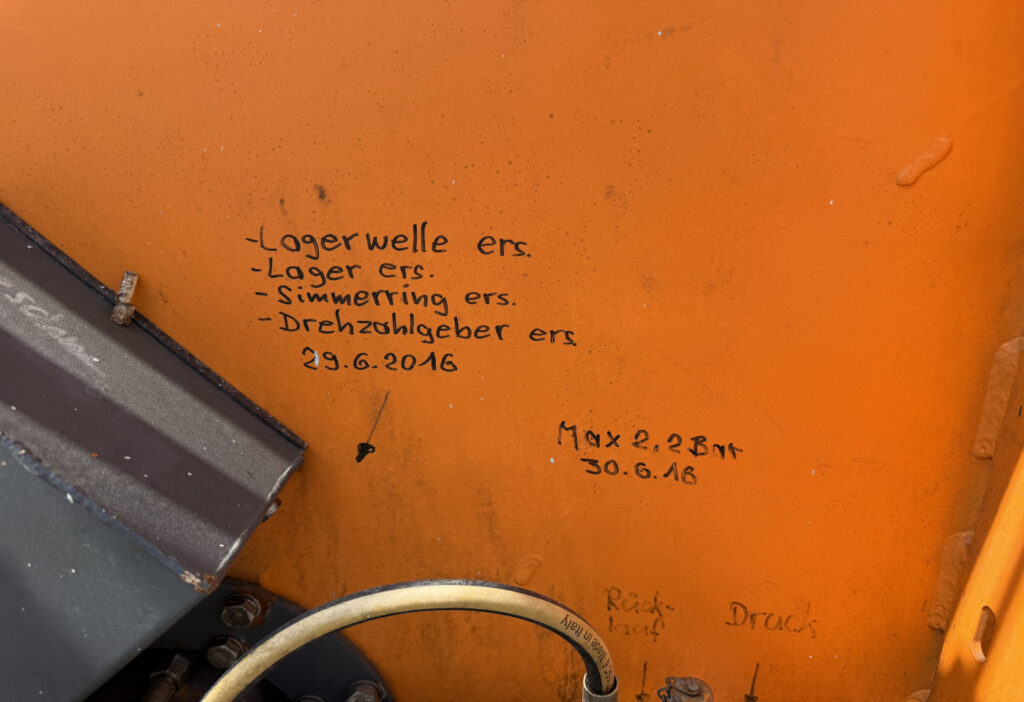 -Lagerwelle ers.
-Lager ers.
-Simmerring ers.
-Drehzahlgeber ers.
29.6.2016
Max 2,2 Bar
30.6.16
Rück-
lauf
Druck
Made in Italy